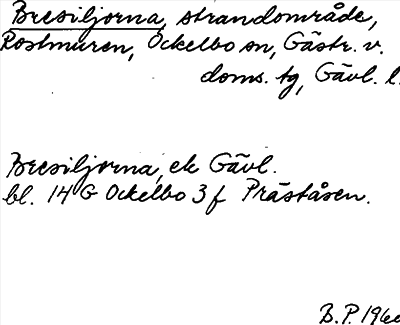 Bresiljorna, strandområde,
Rostmuren, Ockelbo sn, Gästr. v.
doms. tg, Gävl. l.
Bresiljorna, ek Gävl.
bl. 14 G Ockelbo 3 f Präståsen.
B.P. 196